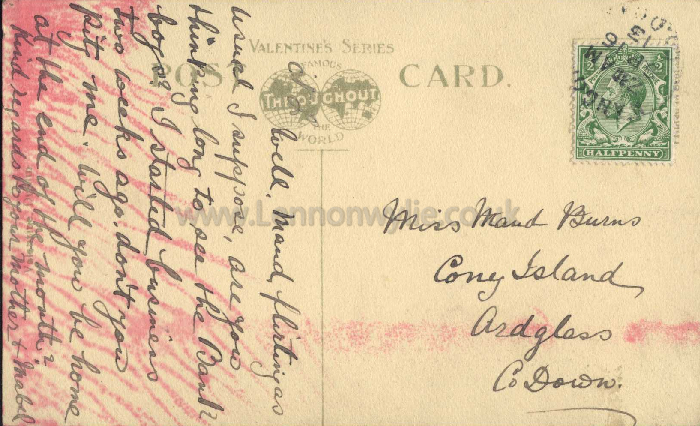 VALENTINE'S SERIES
POST CARD.
FAMOUS
THROUGHOUT
THE
WORLD
HALFPENNY
www.Lennonwylie.co.uk
Miss Maud Burns
Coney Island
Ardglass
Co Down.
Well, Maud, flirting as
usual I suppose, are you
thinking long to see the Bank
boys? I started business
two weeks ago. don't you
pity me. Will you be home
at the end of the month?
kind regards to your mother & Mabel